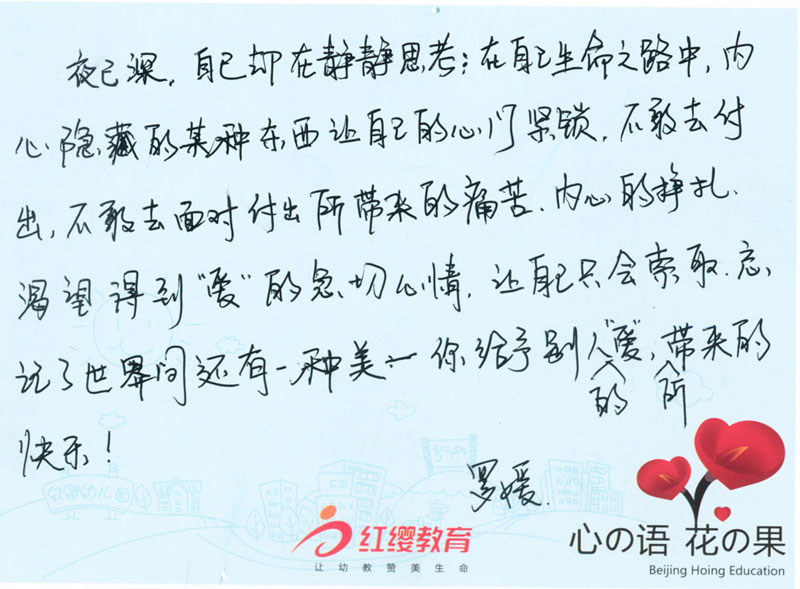 夜已深，自己却在静静思考：在自己生命之路中，内
心隐藏的某种东西让自己的心门紧锁，不敢去付
出，不敢去面对付出所带来的痛苦、内心的挣扎、
渴望得到“爱”的急切心情，让自己只会索取，忘
记了世界间还有一种美——你给予别人的“爱”，所带来的
快乐！
罗媛.
红缨幼儿园
红缨教育
让幼教赞美生命
心の语 花の果
Beijing Hoing Education